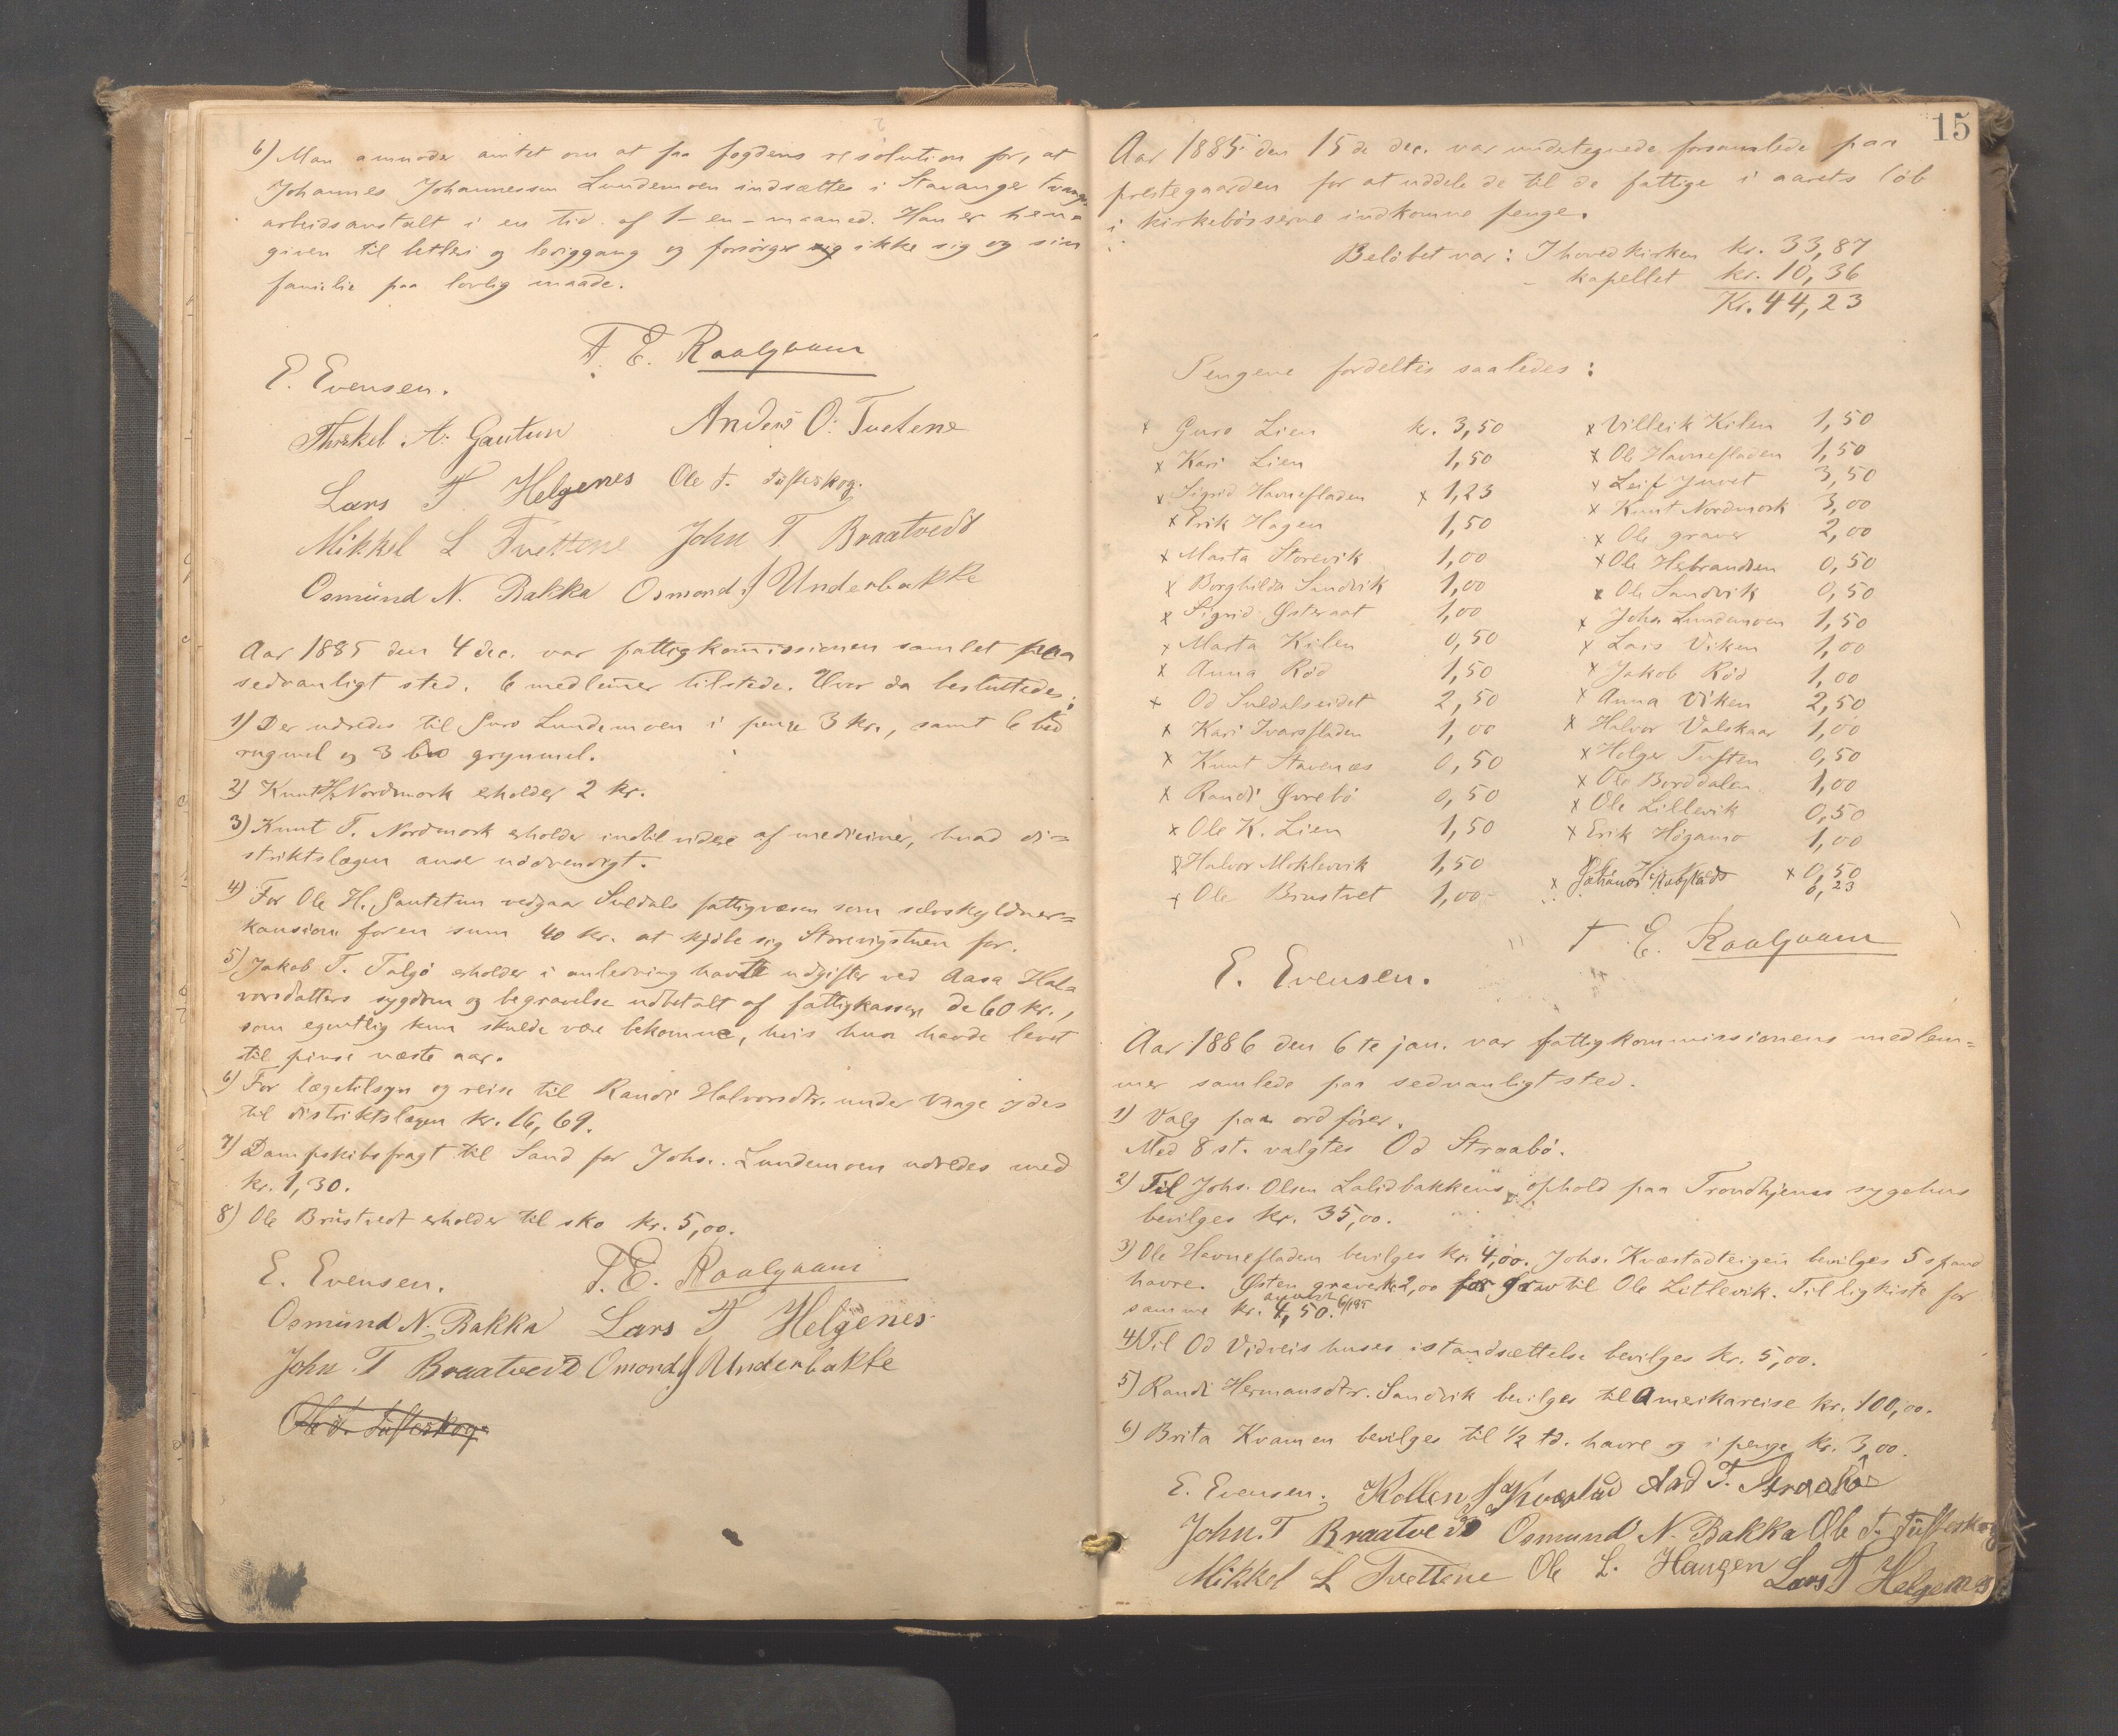 6) Man anmoder amtet om at faa fogdens resolution for, at
Johannes Johannessen Lundemoen indsættes i Stavanger tvangs
arbeidsanstalt i en tid af 1 - en - maaned. Han er hen=
given til betleri og lediggang og forsörger sig ikke sig og sin
familie paa lovlig maade.
T. E. Raalgaam
E. Evensen.
Thorkel A. Gautun Anders O. Tvetene
Lars T. Helgenes Ole T. Tufteskog.
Mikkel L Tvettene John T Braatvedt
Osmund N. Bakka Osmond J Underbakke
Aar 1885 den 4 dec. var fattigkommissionen samlet paa
sedvanligt sted. 6 medlemer tilstede. Hvor da besluttedes:
1) Der udredes til Guro Lundemoen i penge 3 kr., samt 6 bsd
rugmel og 3 bsd grynmel.
2) Knut H. Nordmork erholder 2 kr.
3) Knut T. Nordmork erholder indtil videre af mediciner, hvad di=
striktslægen anser nödvendigt.
4) For Ole H. Gautetun vedgaar Suldals fattigvæsen som selvskyldner=
kausion for en sum 40 kr. at kjöbe sig Storevigstuen for.
5) Jakob T. Tölgö erholder i anledning havte udgifter ved Aasa Hal=
vorsdatters sygdom og begravelse udbetalt af fattigkassen de 60 kr.,
som egentlig kun skulde være bekomne, hvis hun havde levet
til pinse næste aar.
6) For lægetilsyn og reise til Randi Halvorsdtr. under Vaage ydes
til distriktslægen kr. 16,69.
7) Dampskibsfragt til Sand for Johs. Lundemoen udredes med
kr. 1,30.
8) Ole Brustvedt erholder til sko kr. 5,00.
E. Evensen. T. E. Raalgaam
Osmund N. Bakka Lars T Helgenes
John T Braatvedt Omond J Underbakke
Ole T. Tufteskog
15
Aar 1885 den 15de dec. var undertegnede forsamlede paa
prestegaarden for at uddele de til de fattige i aarets löb
i kirkebösserne indkomne penge.
Belöbet var: I hovedkirken kr. 33,87
- kapellet kr. 10,36
Kr. 44,23
Pengene fordeltes saaledes:
x Guro Lien kr. 3,50 x Villeik Kilen 1,50
x Kari Lien 1,50 x Ole Havnefladen 1,50
x Sigrid Havnefladen x 1,23 x Leif Juvet 3,50
x Erik Hagen 1,50 x Knut Nordmork 3,00
x Marta Storevik 1,00 x Ole graver 2,00
x Borghilda Sandvik 1,00 x Ole Hebrandsen 0,50
x Sigrid Østeraat 1,00 x Ole Sandvik 0,50
x Marta Kilen 0,50 x Johs Lundemoen 1,50
x Anna Röd 1,50 x Lars Viken 1,00
x Od Suldalseidet 2,50 x Jakob Röd 1,00
x Kari Ivarsfladen 1,00 x Anna Viken 2,50
x Knut Stavenæs 0,50 x Halvor Valskaar 1,00
x Randi Øvrebö 0,50 x Helger Tuften 0,50
x Ole K. Lien 1,50 x Ole Borddalen 1,00
x Halvor Moklevvik 1,50 x Ole Litlevik 0,50
x Ole Brustvet 1,00 x Erik Högamo 1,00
x x 0,50
0,23
T. E. Raalgaam
E. Evensen.
Aar 1886 den 6te jan. var fattigkommissionens medlem=
mer samlede paa sedvanligt sted.
1) Valg paa ordförer.
Med 8 st. valgtes Od Straabö.
2) Til Johs. Olsen Lalidbakkens ophold paa Trondhjems sygehus
bevilges kr. 35,00.
3) Ole Havnefladen bevilges kr. 4,00. Johs. Kvæstadteigen bevilges 5 spand
havre. Østen graver kr. 2,00 for grav til Ole Litlevik. Til ligkiste for
samme kr. 4,50.
4) Til Od Vidveis huses istandsættelse bevilges kr. 5,00.
5) Randi Hermansdtr. Sandvik bevilges til Amerikareise kr. 100,00.
6) Brita Kvamen bevilges til 1/2 td. havre og i penge kr. 3,00.
E. Evensen. Kolben J Kvæstad Aad T. Straabö
John. T Braatvedt Osmund N. Bakka Ole T. Tufteskog
Mikkel L Tvettene Ole L. Haugen Lars T Helgenes